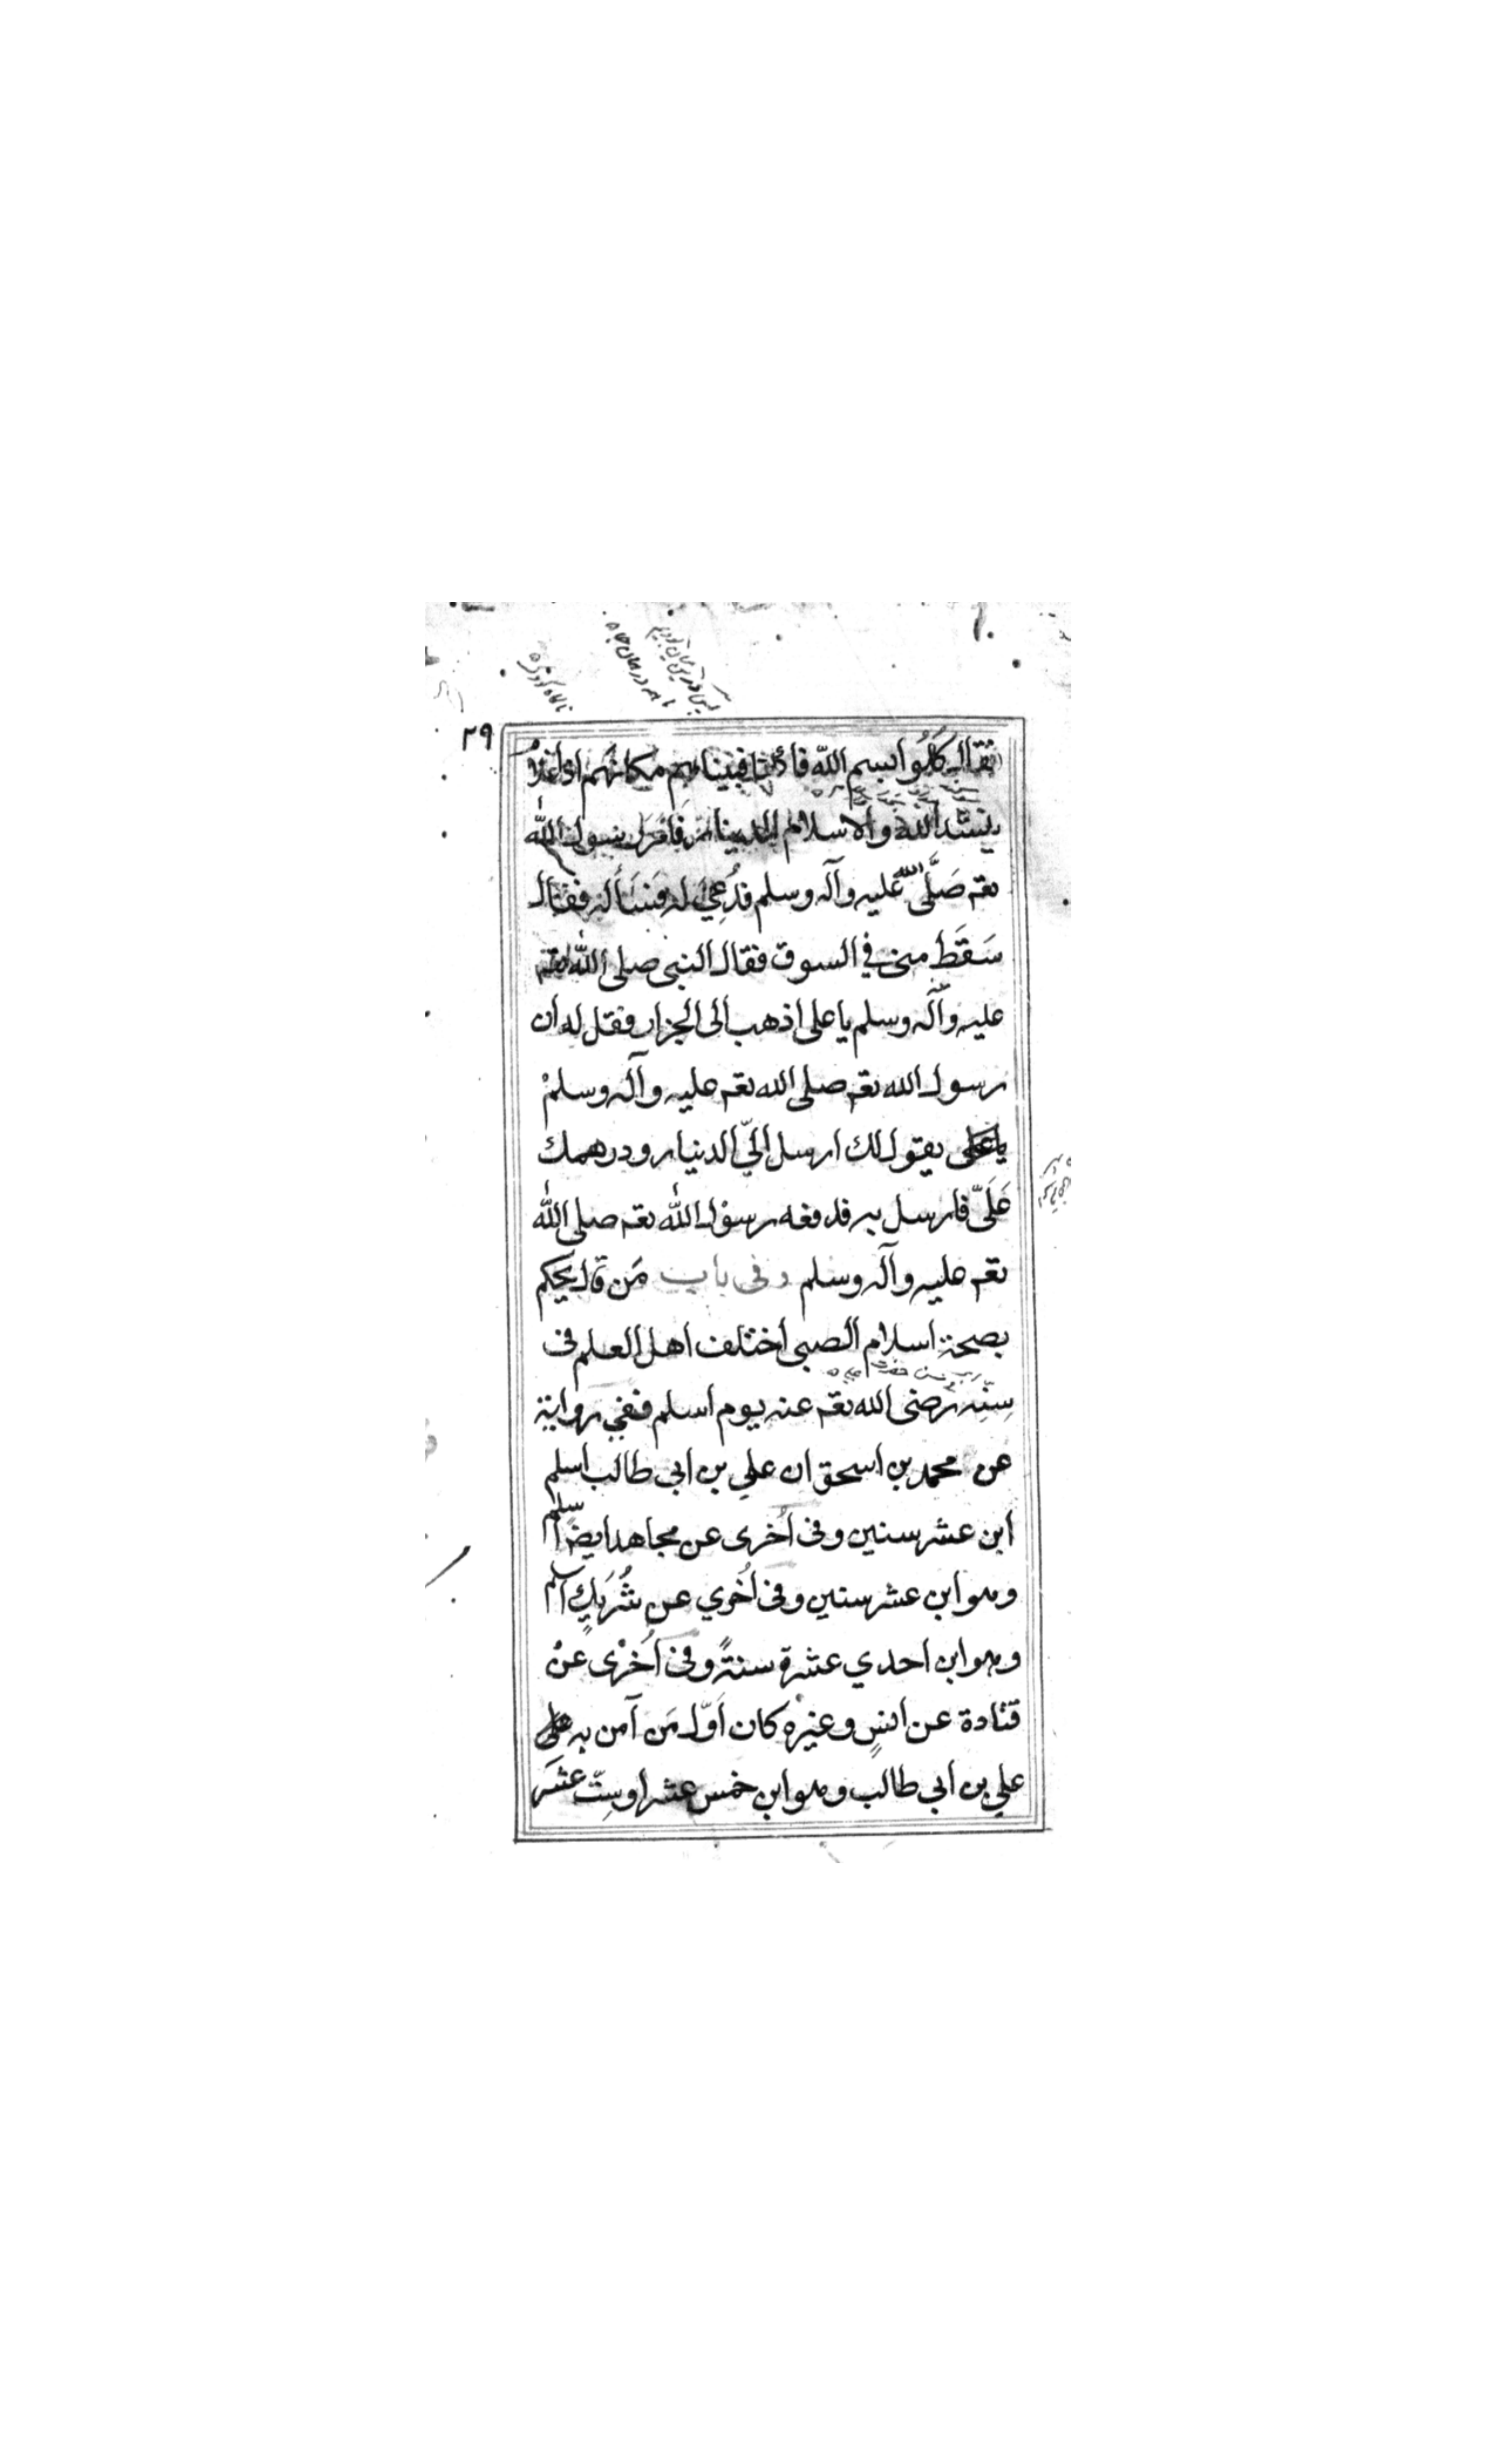 ٢٩
فقال كُلُوا بسم الله فأكلنا فبيناهم مكانهم اذا غلامٌ
ينشد الله والاسلام الدينار فامر رسول الله
تعہ صَلَّى الله عليه وآله وسلم فدُعِيَ له فسَأله فقال
سَقَط منى في السوق فقال النبى صلى الله تعہ
عليه وآله وسلم يا على اذهب الى الجزار فقل له ان
رسول الله تعہ صلى الله تعہ عليه وآله وسلم
يقول لك ارسل الىّ الدنيار ودرهمك
عَلَىّ فارسل به فدفعه رسول الله تعہ صلى الله
تعہ عليه وآله وسلم وفى باب مَن قال يحكم
بصحة اسلام الصبى اختلف اهل العلم فى
سِنِّه رَضى الله تعہ عنه يوم اسلم ففي رواية
عن محمد بن اسحق ان علي بن ابى طالب اسلم
ابن عشر سنين وفى اُخرى عن مجاهد ايضً اسلم
وهو ابن عشر سنين وفى اُخري عن شُرَيكٍ اسلم
وهو ابن احدي عشرة سنةً وفى اُخرٰى عنْ
قتادة عن انسٍ وغيره كان اَوّل مَن آمن به
علي بن ابي طالب وهو ابن خمس عشر اوسِتّ عشَر